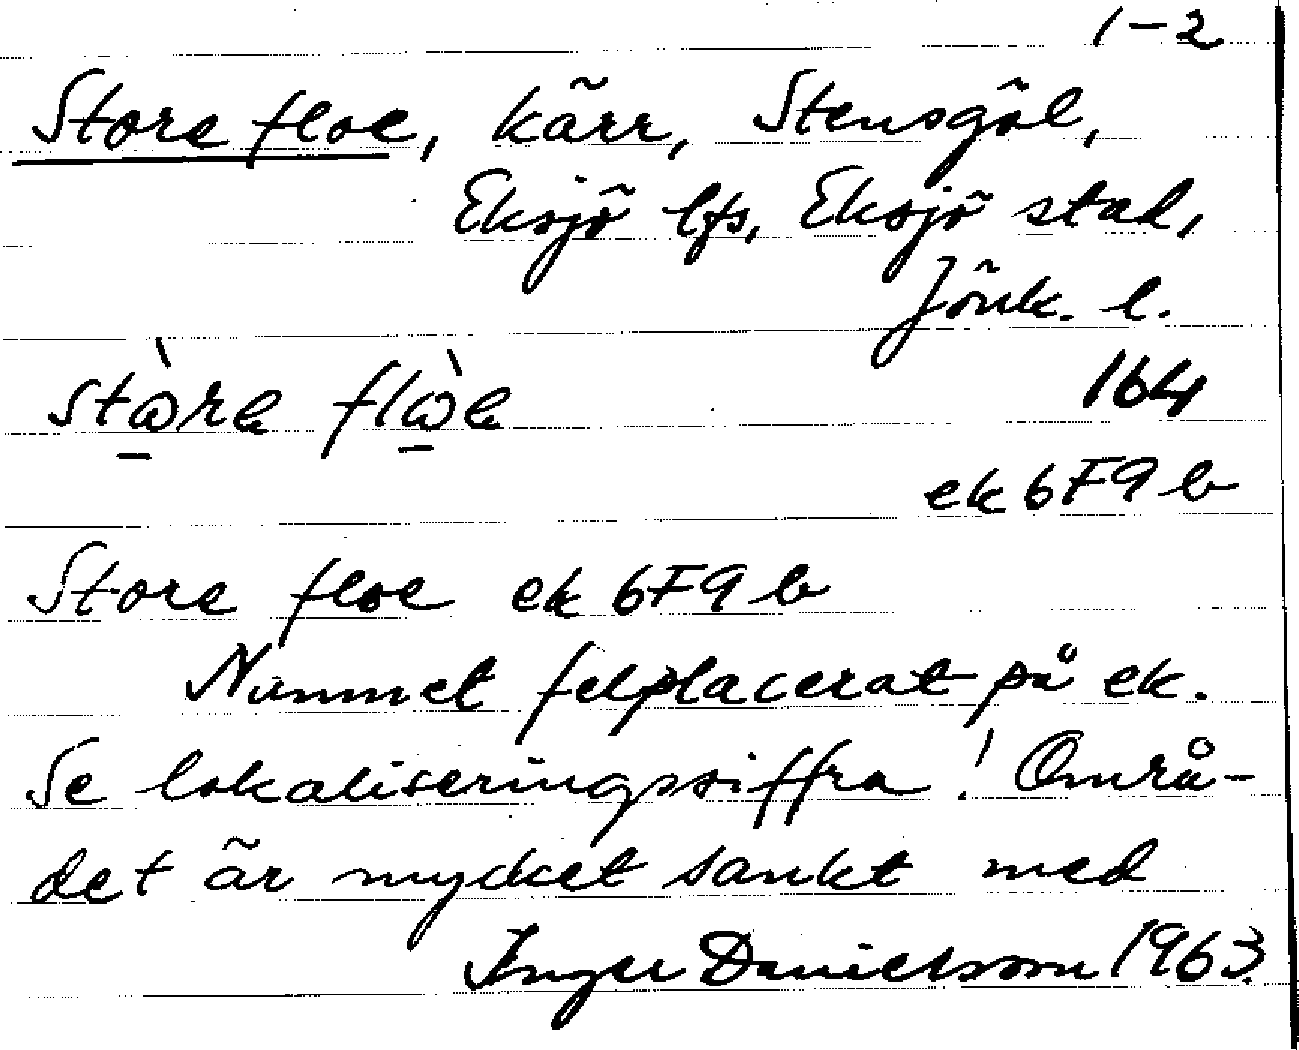 1-2
Store floe, kärr, Stensgöl,
Eksjö lfs, Eksjö stad,
Jönk. l.
stὼ̱re flὼ̱e
164
ek 6F9b
Store floe ek 6F9b
Numret felplacerat på ek.
Se lokaliseringssiffra! Områ-
det är mycket sankt med
Inger Danielsson 1963.